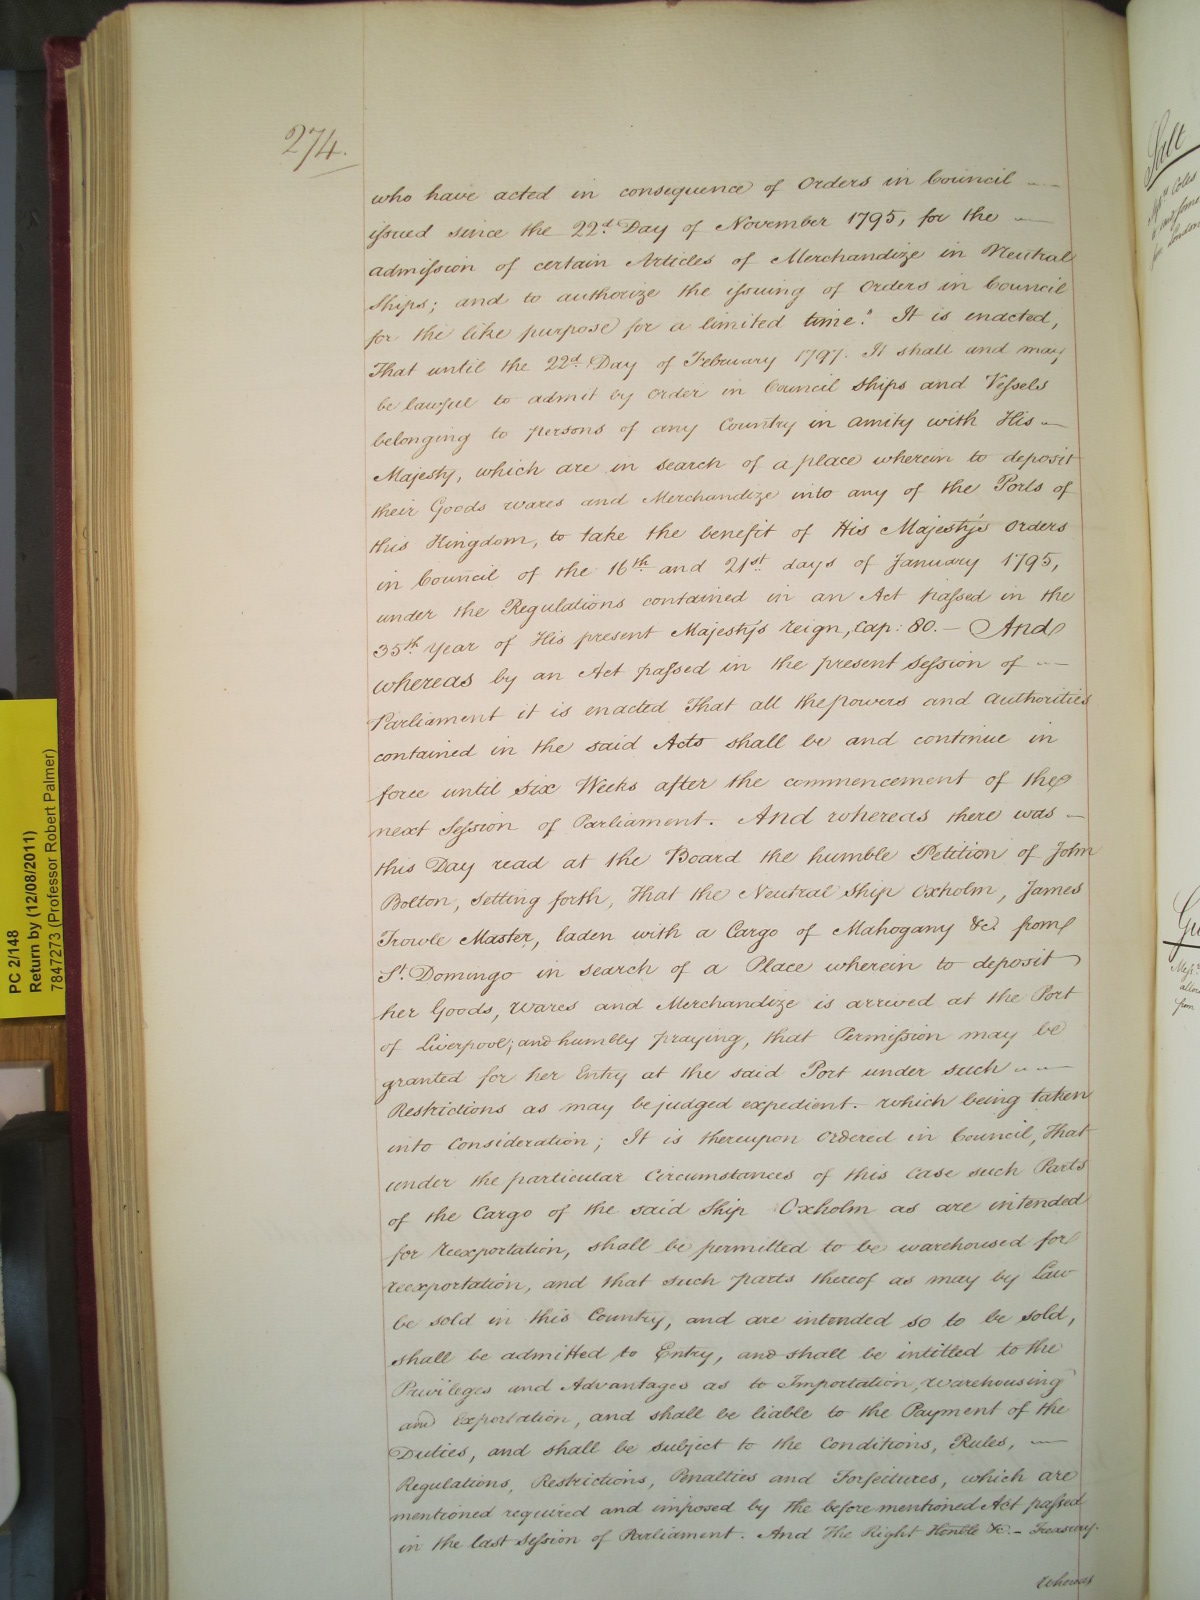 274.
who have acted in consequence of Orders in Council
issued since the 22d. Day of November 1795, for the
admission of certain Articles of Merchandize in Neutral
Ships; and to authorize the issuing of Orders in Council
for the like purpose for a limited time." It is enacted,
That until the 22d. Day of February 1797. It shall and may
be lawful to admit by Order in Council Ships and Vessels
belonging to persons of any Country in amity with His
Majesty, which are in search of a place wherein to deposit
their Goods wares and Merchandize into any of the Ports of
this Kingdom, to take the benefit of His Majesty's Orders
in Council of the 16th and 21st. days of January 1795,
under the Regulations contained in an Act passed in the
35th. Year of His present Majesty's reign, Cap: 80. — And
whereas by an Act passed in the present Session of
Parliament it is enacted That all the powers and authorities
contained in the said Acts shall be and continue in
force until six Weeks after the commencement of the
next Session of Parliament. And whereas there was
this Day read at the Board the humble Petition of John
Bolton, Setting forth, That the Neutral Ship Oxholm, James
Trowle Master, laden with a Cargo of Mahogany &c. from
St. Domingo in search of a Place wherein to deposit
her Goods, Wares and Merchandize is arrived at the Port
of Liverpool; and humbly praying, that Permission may be
granted for her Entry at the said Port under such
Restrictions as may be judged expedient. which being taken
into Consideration; It is thereupon Ordered in Council, That
under the particular Circumstances of this Case such Parts
of the Cargo of the said Ship Oxholm as are intended
for Reexportation, shall be permitted to be warehoused for
reexportation, and that such parts thereof as may by Law
be sold in this Country, and are intended so to be sold,
shall be admitted to Entry, and shall be intitled to the
Privileges and Advantages as to Importation, warehousing
and Exportation, and shall be liable to the Payment of the
Duties, and shall be subject to the Conditions, Rules,
Regulations, Restrictions, Penalties and Forfeitures, which are
mentioned required and imposed by the before mentioned Act passed
in the last Session of Parliament. And The Right Honble &c. — Treasury.
Whereas
PC 2/148
Return by (12/08/2011)
7847273 (Professor Robert Palmer)
Salt
Coles
London